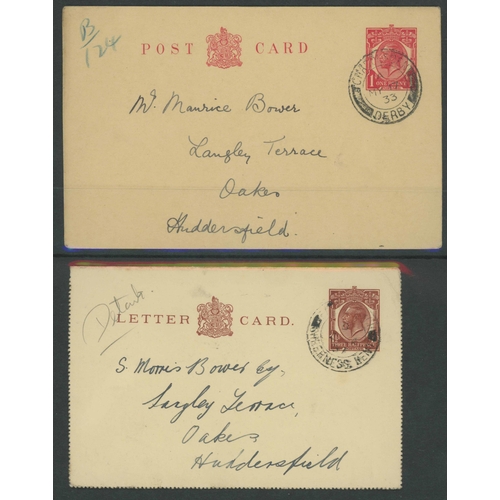 B/124
POST CARD
ONE PENNY
33
DERBY
Mr. Maurice Bower
Langley Terrace
Oakes
Huddersfield.
Detach.
LETTER CARD.
S. Morris Bower Esq,
Langley Terrace,
Oakes
Huddersfield